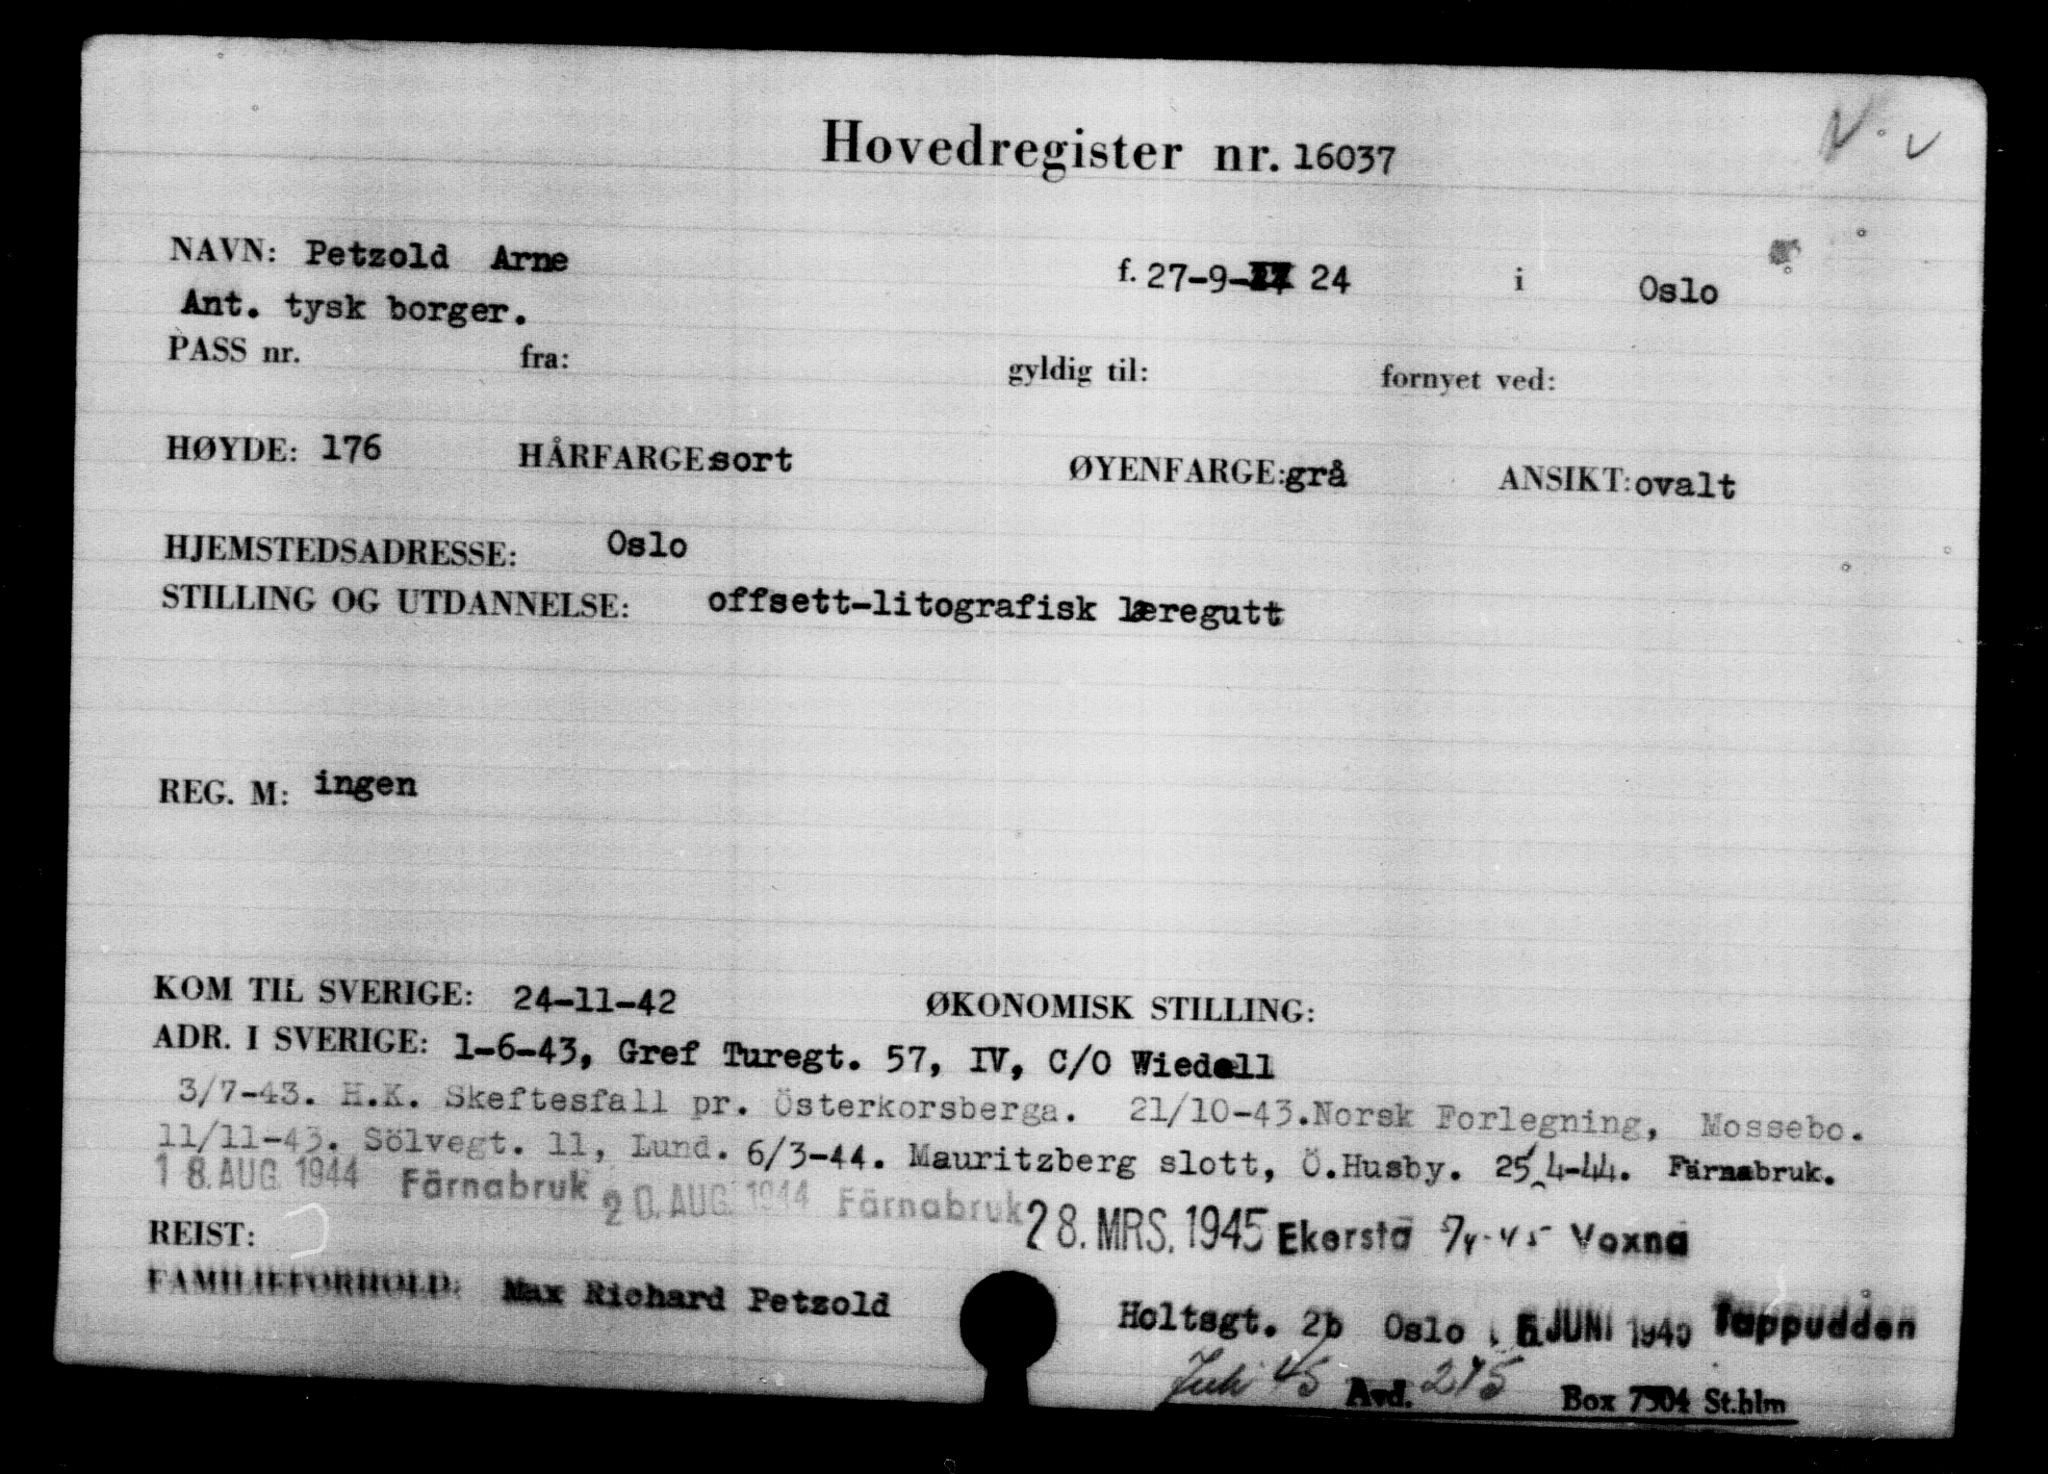 Hovedregister nr. 16037
NAVN: Petzold Arne f. 27-9- 24 i Oslo
Ant. tysk borger.
PASS nr. fra: gyldig til: fornyet ved:
HØYDE: 176 HÅRFARGE sort ØYENFARGE: grå ANSIKT: ovalt
HJEMSTEDSADRESSE: Oslo
STILLING OG UTDANNELSE: offsett-litografisk læregutt
REG. M: ingen
KOM TIL SVERIGE: 24-11-42 ØKONOMISK STILLING:
ADR. I SVERIGE: 1-6-43, Gref Turegt. 57, IV, C/O Wiedell
3/7-43. H.K. Skeftesfall pr. Österkorsberga. 21/10-43. Norsk Forlegning, Mossebo.
11/11-43. Sölvegt. 11, Lund. 6/3-44. Mauritzberg slott, Ö.Husby. 25/4-44. Färnabruk.
18. AUG. 1944 Färnabruk 20. AUG. 1944 Färnabruk 28. MRS. 1945 Ekersta 9/4-45 Voxna
REIST:
FAMILIEFORHOLD: Max Richard Petzold Holtsgt. 2b Oslo JUNI Tappudden
Juli 45 Avd. 215 Box 7304 St.hlm